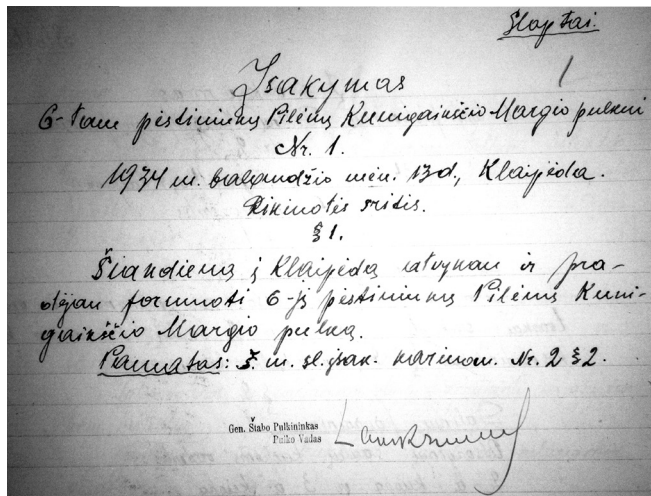 Slaptai.
1
Įsakymas
6-tam pėstininkų Pilėnų Kunigaikščio Margio pulkui
Nr. 1.
1934 m. balandžio mėn. 13 d., Klaipėda.
Rikiuotės sritis.
§ 1.
Šiandieną į Klaipėdą atvykau ir pra-
dėjau formuoti 6-jį pėstininkų Pilėnų Kuni-
gaikščio Margio pulką.
Pamatas: š. m. sl. įsak. kariuom. Nr. 2 § 2.
Gen. Štabo Pulkininkas
Pulko Vadas